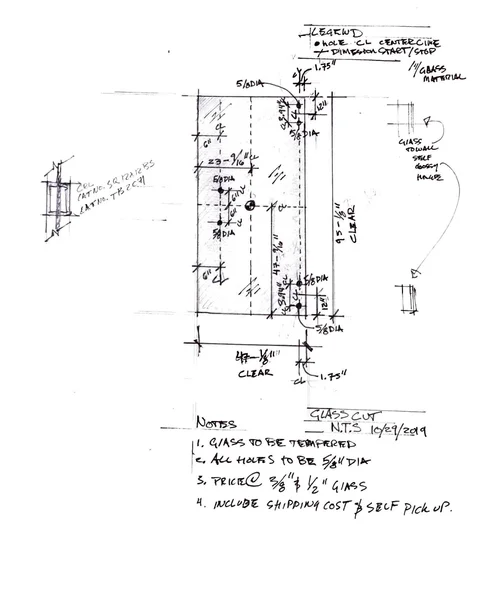 LEGEND
• HOLE CL CENTERLINE
+ DIMENSION START/STOP
/// GLASS
MATERIAL
1.75"
5/8 DIA
12"
CL
5/8 DIA
6"
CL
23-9/16"
CL
5/8 DIA
6"
CL
6"
CL
5/8 DIA
6"
CL
47-9/16"
95-1/8"
CLEAR
GLASS
TO WALL
SELF
HINGE
CRL
5/8 DIA
CL
12"
5/8 DIA
47-1/8"
CLEAR
CL
1.75"
GLASS CUT
N.T.S 10/29/2019
NOTES
1. GLASS TO BE TEMPERED
2. ALL HOLES TO BE 5/8" DIA
3. PRICE @ 3/8" & 1/2" GLASS
4. INCLUDE SHIPPING COST & SELF PICK UP.